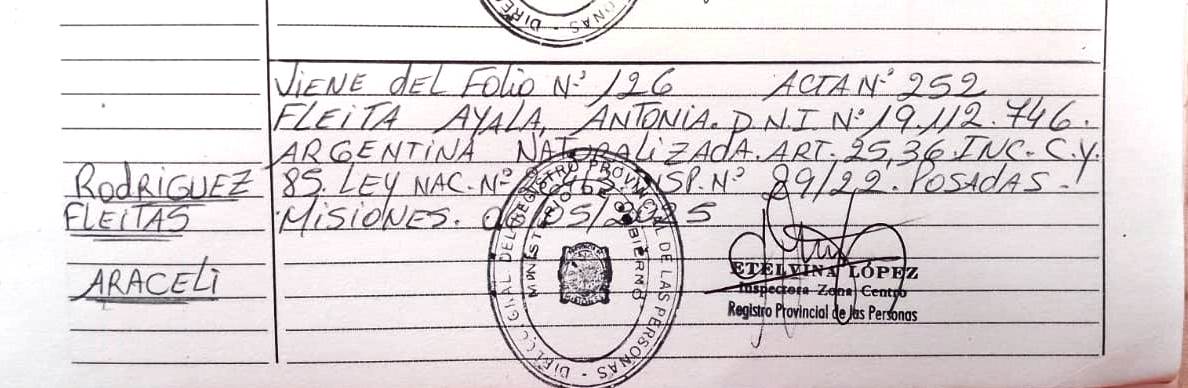 VIENE DEL FOLIO Nº 126 ACTA Nº 252
FLEITA AYALA, ANTONIA. D.N.I. Nº 19.112.746.
ARGENTINA NATURALIZADA. ART. 25,36. INC. C.Y.
85. LEY NAC. Nº DISP. Nº 89/22. POSADAS.
MISIONES. 05/2025
RODRIGUEZ
FLEITAS
ARACELI
DIREC. GRAL DEL REGISTRO PROVINCIAL DE LAS PERSONAS
MINISTERIO DE GOBIERNO
ETELVINA LÓPEZ
Inspectora Zona Centro
Registro Provincial de las Personas